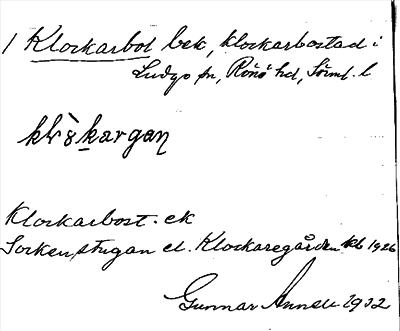 1 Klockarbol bek, klockarbostad i
Ludgo sn, Rönö hd, Söml. l
Klockarbost. ek
Sockenstugan el. Klockaregården kb 1926
Gunnar 1932